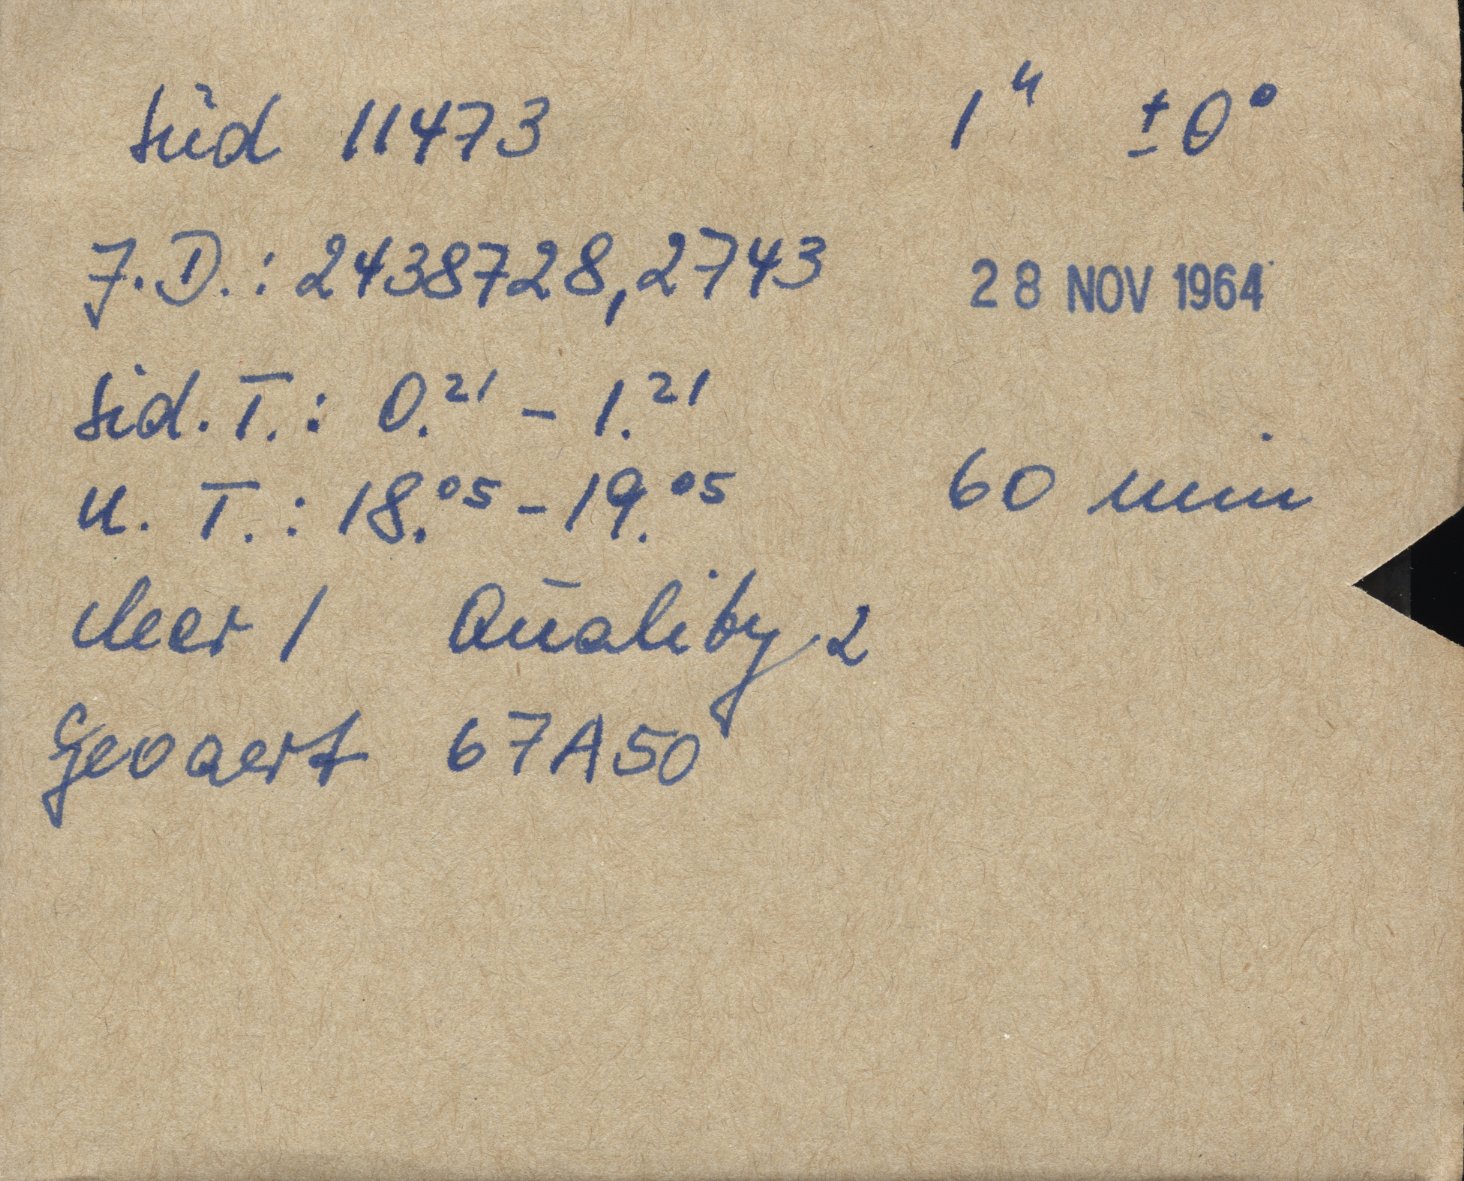 Süd 11473 1ʰ ±0°
J.D.: 2438728,2743 28 NOV 1964
Sid. T.: 0.²¹ – 1.²¹
U. T.: 18.⁰⁵ – 19.⁰⁵ 60 min
cleer 1 Quality 2
Gevaert 67A50